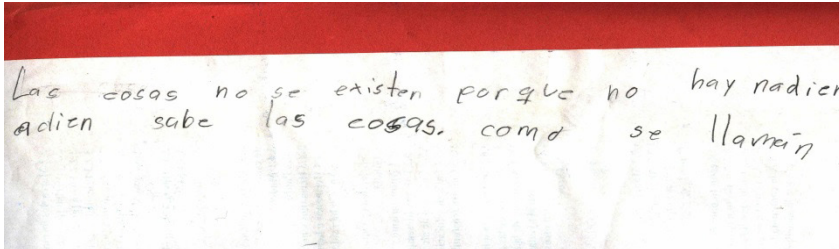 Las cosas no se existen porque no hay nadien
adien sabe las cosas. como se llaman